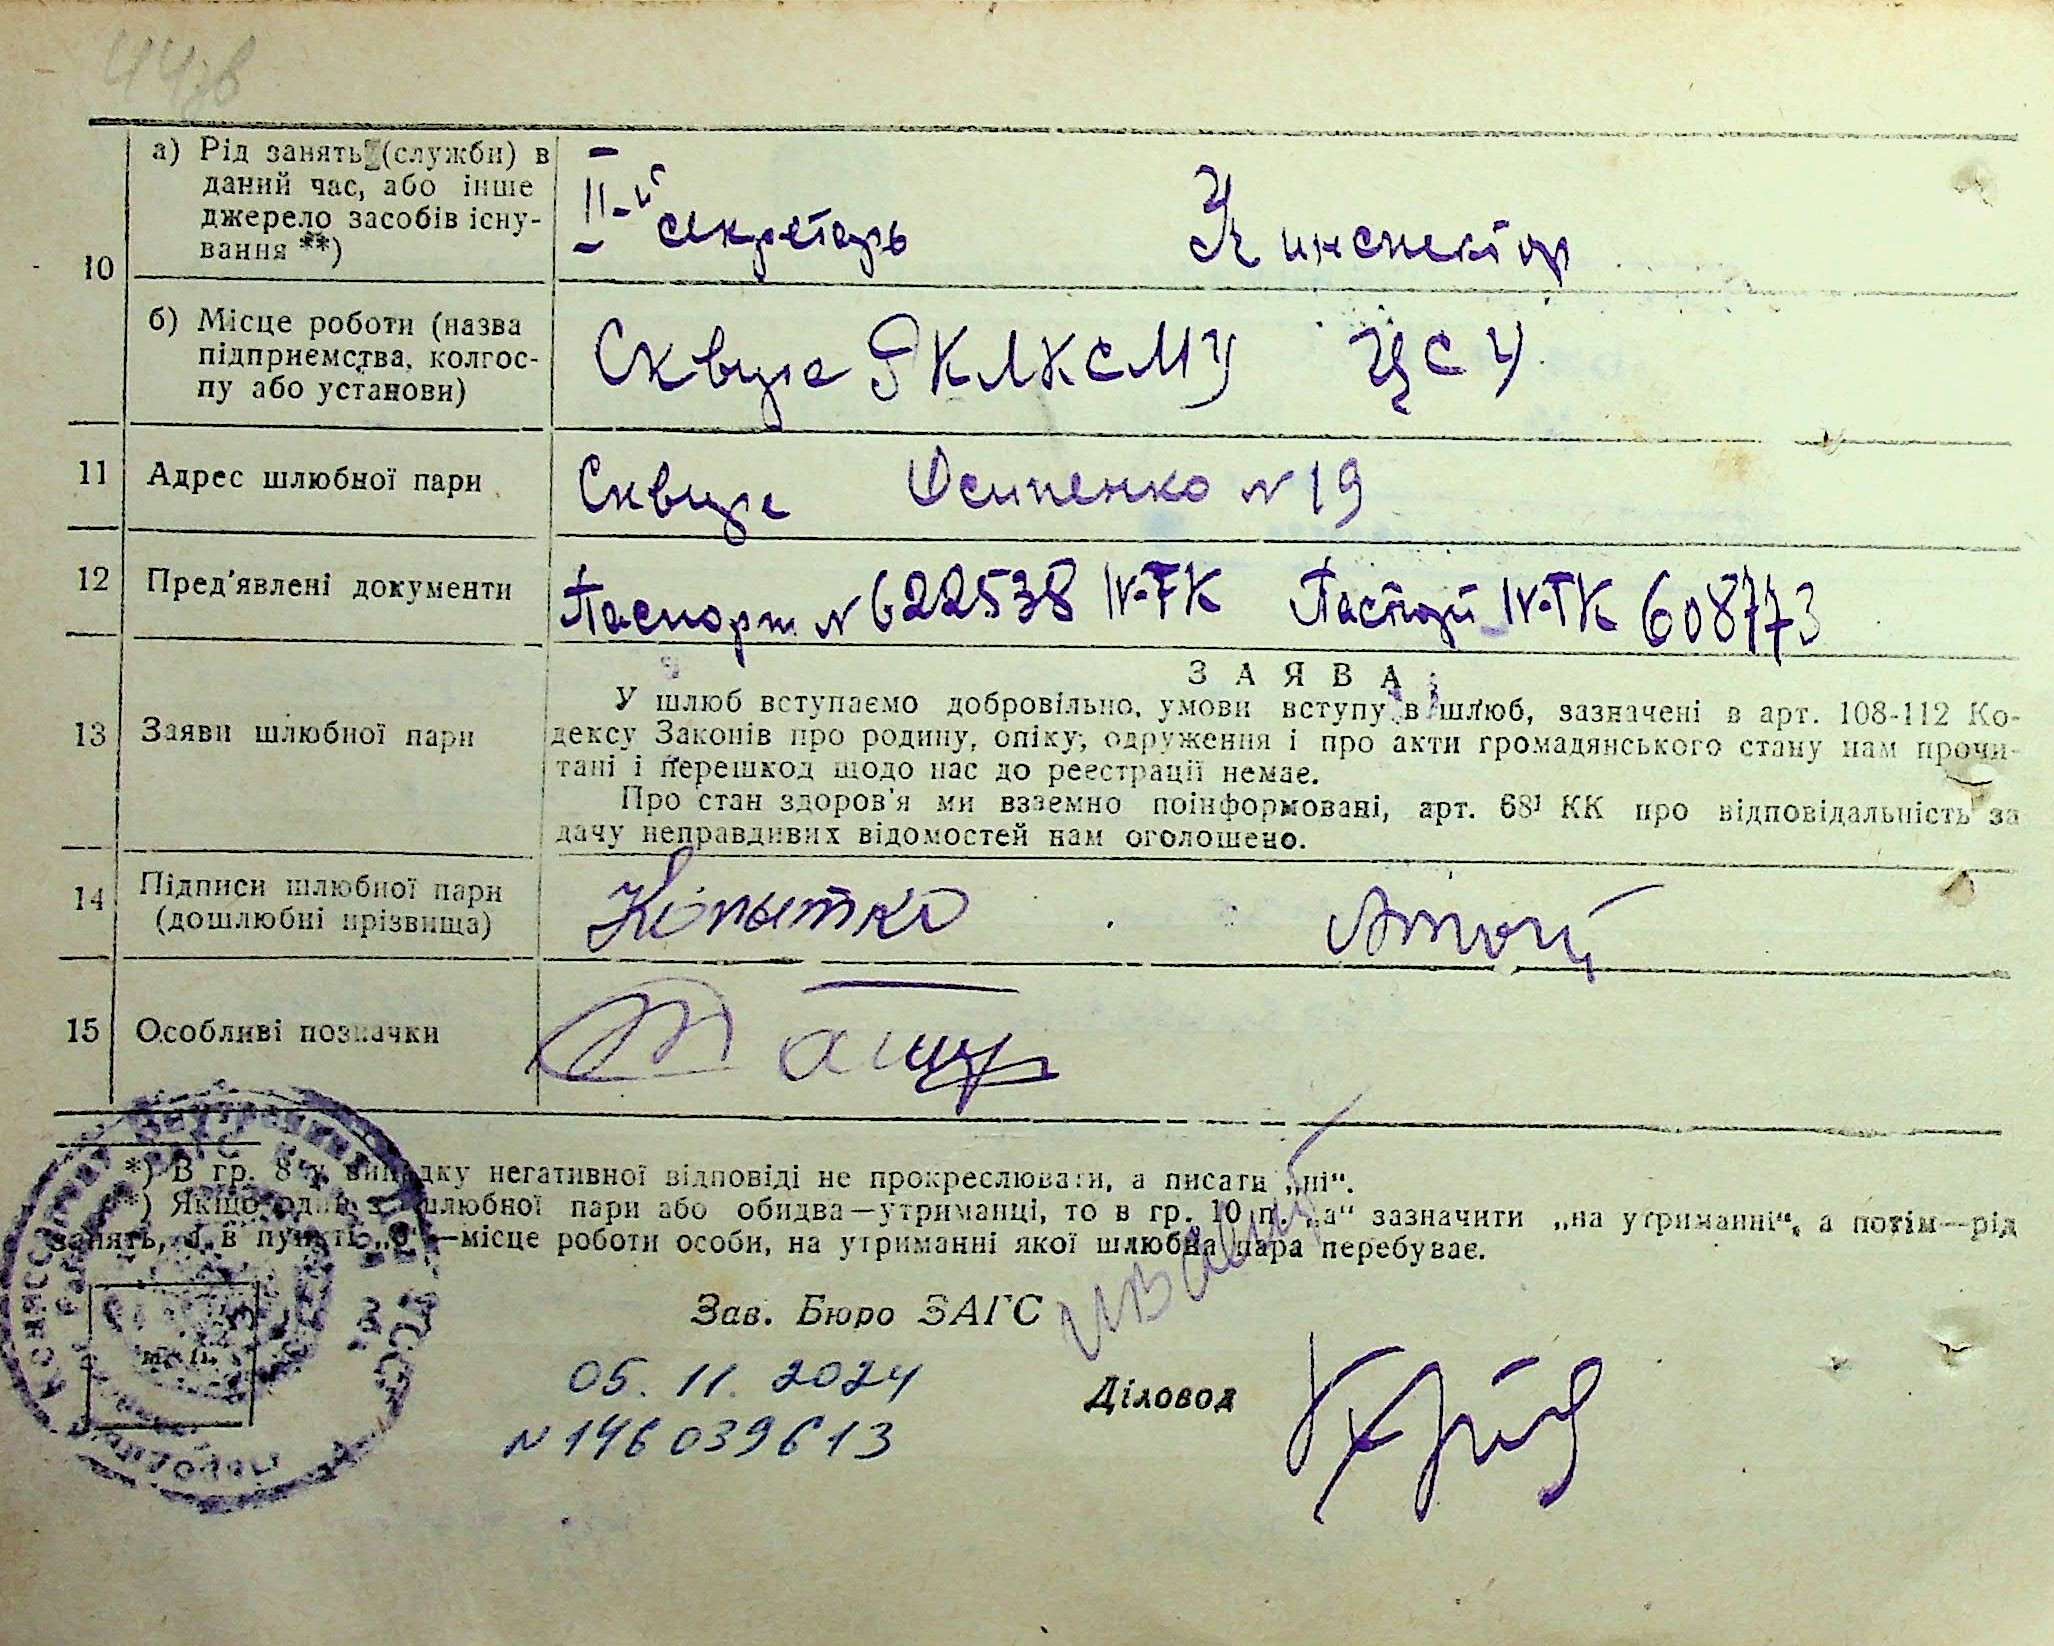 10
а) Рід занять (служби) в
даний час, або інше
джерело засобів існу-
вання **)
II-й секретарь
инспектор
б) Місце роботи (назва
підприємства, колгос-
пу або установи)
Сквира РКЛКСМУ ЦСУ
11 Адрес шлюбної пари
Сквира Осипенко N 19
12 Пред'явлені документи
Паспорт N 622538 IV-ТК Паспорт IV-ТК 608773
13 Заяви шлюбної пари
ЗАЯВА
У шлюб вступаємо добровільно, умови вступу в шлюб, зазначені в арт. 108-112 Ко-
дексу Законів про родину, опіку, одруження і про акти громадянського стану нам прочи-
тані і перешкод щодо нас до реєстрації немає.
Про стан здоров'я ми взаємно поінформовані, арт. 68¹ КК про відповідальність за
дачу неправдивих відомостей нам оголошено.
14 Підписи шлюбної пари
(дошлюбні прізвища)
Копытко
15 Особливі позначки
*) В гр. 8 у випадку негативної відповіді не прокреслювати, а писати „ні“.
**) Якщо один з шлюбної пари або обидва—утриманці, то в гр. 10 п. „а“ зазначити „на утриманні“, а потім—рід
занять, а в пункті „б“—місце роботи особи, на утриманні якої шлюбна пара перебуває.
Зав. Бюро ЗАГС
05.11.2024
Діловод
N 146039613